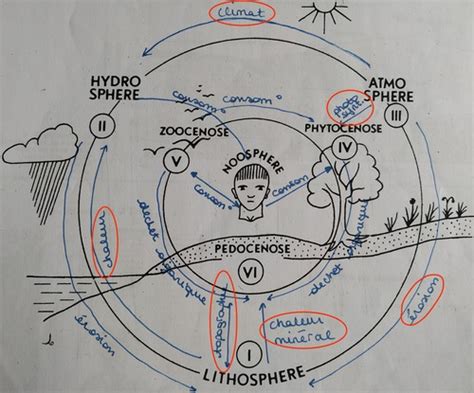 climat
HYDRO
SPHERE
II
ATMO
SPHERE
III
consom°
consom°
photo
synt.
ZOOCENOSE
V
PHYTOCENOSE
IV
NOOSPHERE
consom°
consom°
chaleur
déchet organique
déchet organique
PEDOCENOSE
VI
érosion
topographie
chaleur
minéral
érosion
I
LITHOSPHERE